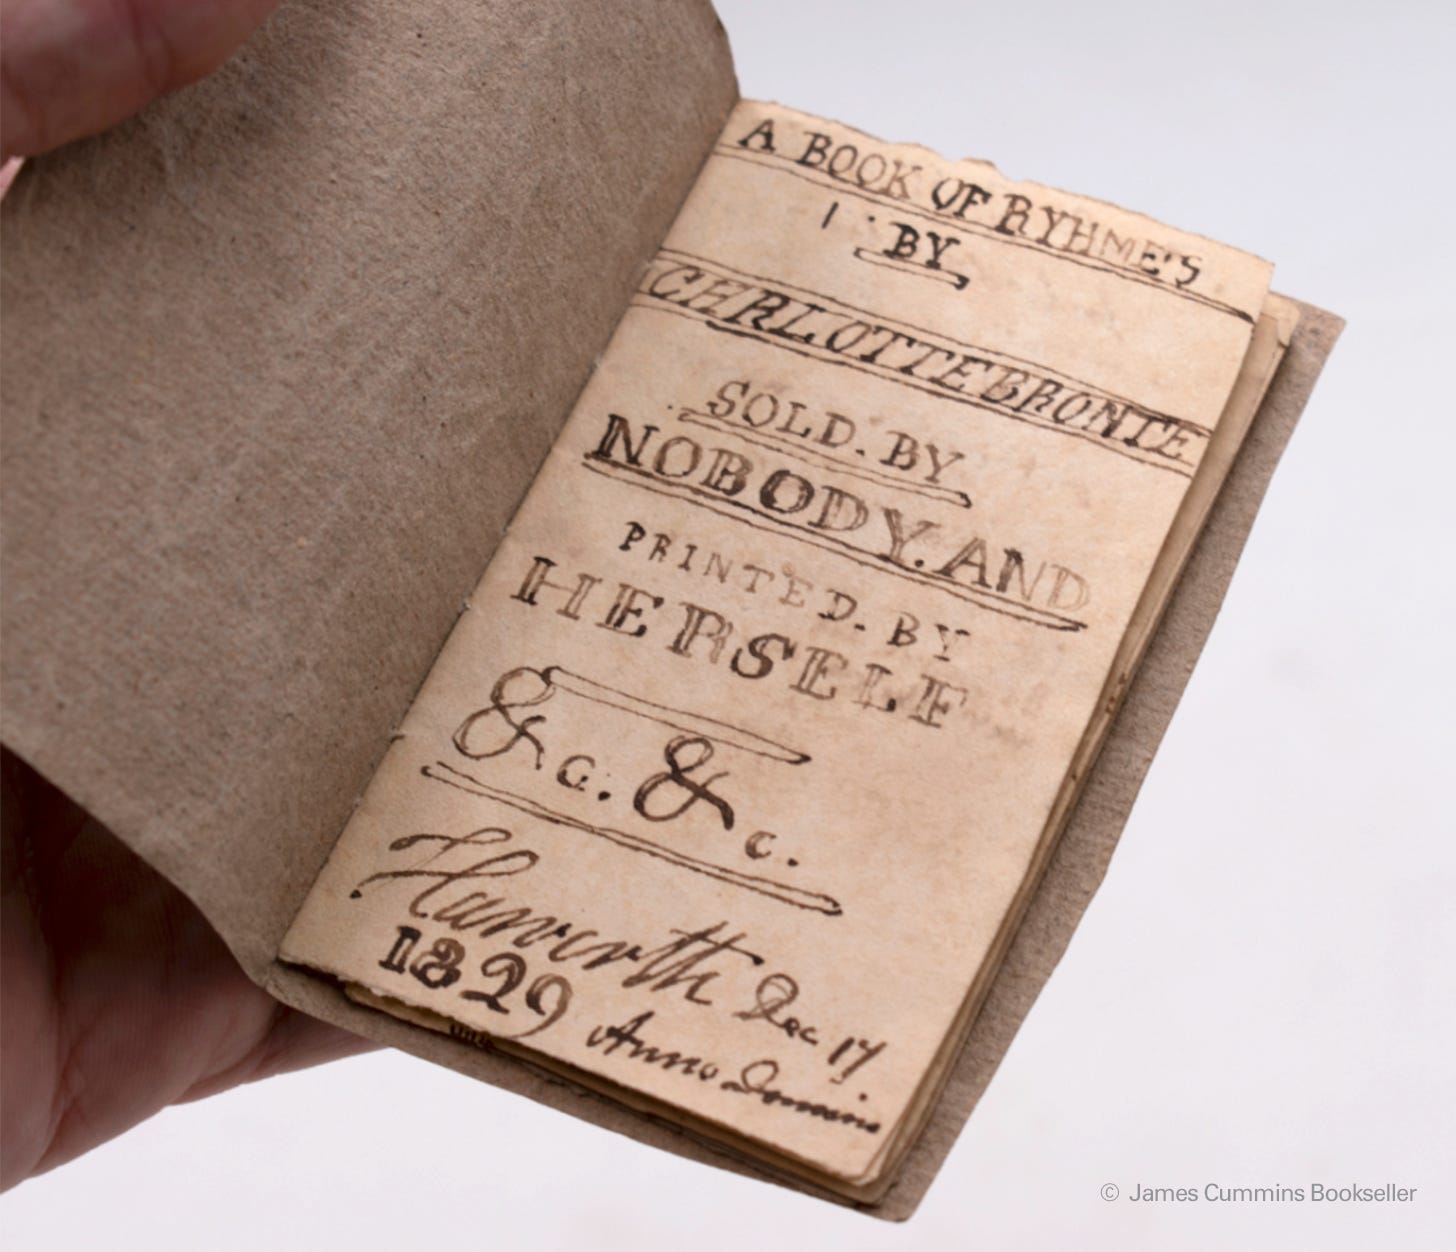 A BOOK OF RYHME'S
BY
CHRLOTTE BRONTE
SOLD. BY
NOBODY. AND
PRINTED. BY
HERSELF
&c. & c.
Haworth Dec 17
1829 Anno Domini
© James Cummins Bookseller